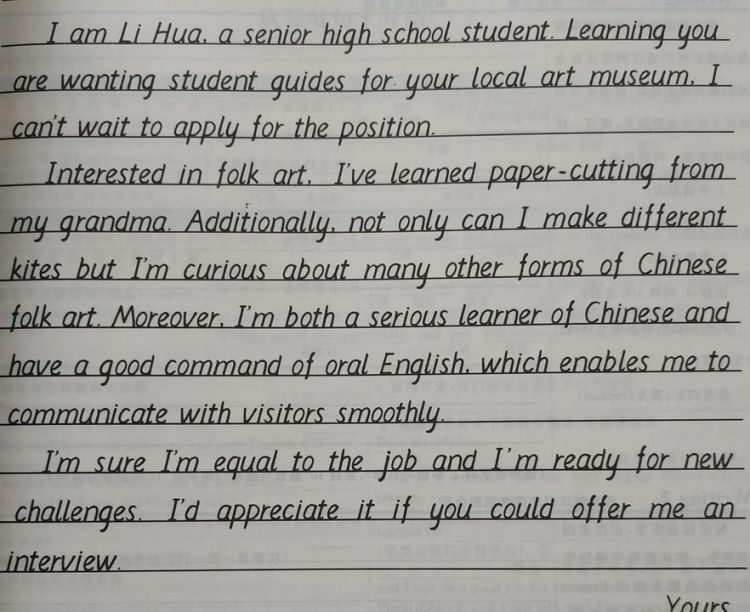 I am Li Hua, a senior high school student. Learning you
are wanting student guides for your local art museum, I
can't wait to apply for the position.
Interested in folk art, I've learned paper-cutting from
my grandma. Additionally, not only can I make different
kites but I'm curious about many other forms of Chinese
folk art. Moreover, I'm both a serious learner of Chinese and
have a good command of oral English, which enables me to
communicate with visitors smoothly.
I'm sure I'm equal to the job and I'm ready for new
challenges. I'd appreciate it if you could offer me an
interview.
Yours